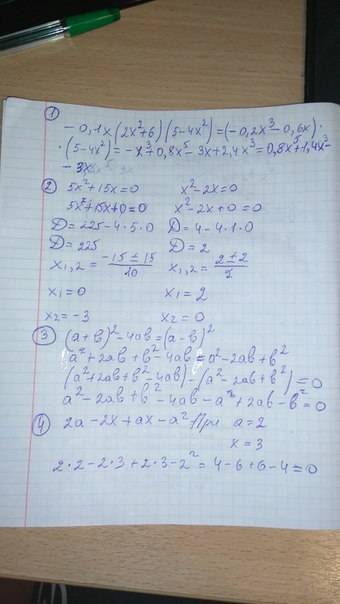 1
- 0,1x (2x²+6) (5-4x²) = (-0,2x³- 0,6x) ·
· (5-4x²) = -x³+0,8x⁵ - 3x+2,4x³=0,8x⁵+1,4x³-
- 3x
2 5x²+15x=0 x²-2x=0
5x²+15x+0=0 x²-2x+0=0
D=225-4·5·0 D=4-4·1·0
D=225 D=2
x₁,₂= -15±15/10 x₁,₂= 2±2/2
x₁=0 x₁=2
x₂=-3 x₂=0
3 (a+b)²-4ab=(a-b)²
a²+2ab+b²-4ab=a²-2ab+b²
(a²+2ab+b²-4ab)-(a²-2ab+b²)=0
a²-2ab+b²-4ab-a²+2ab-b²=0
4 2a-2x+ax-a² При a=2
x=3
2·2-2·3+2·3-2²=4-6+6-4=0